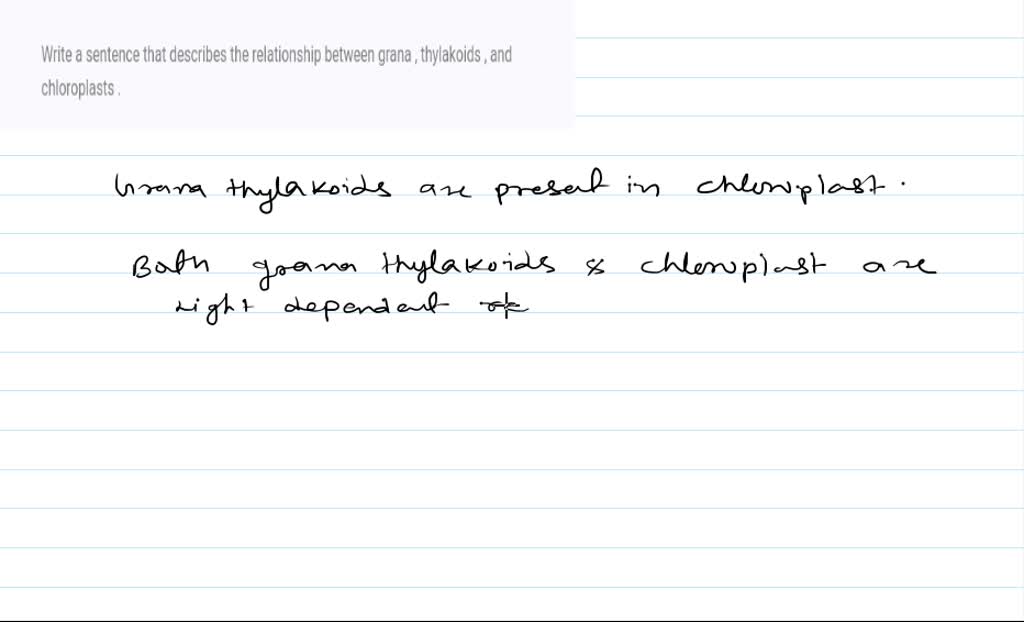 Write a sentence that describes the relationship between grana , thylakoids , and
chloroplasts .
Grana thylakoids are present in chloroplast .
Both grana thylakoids & chloroplast are
light dependent